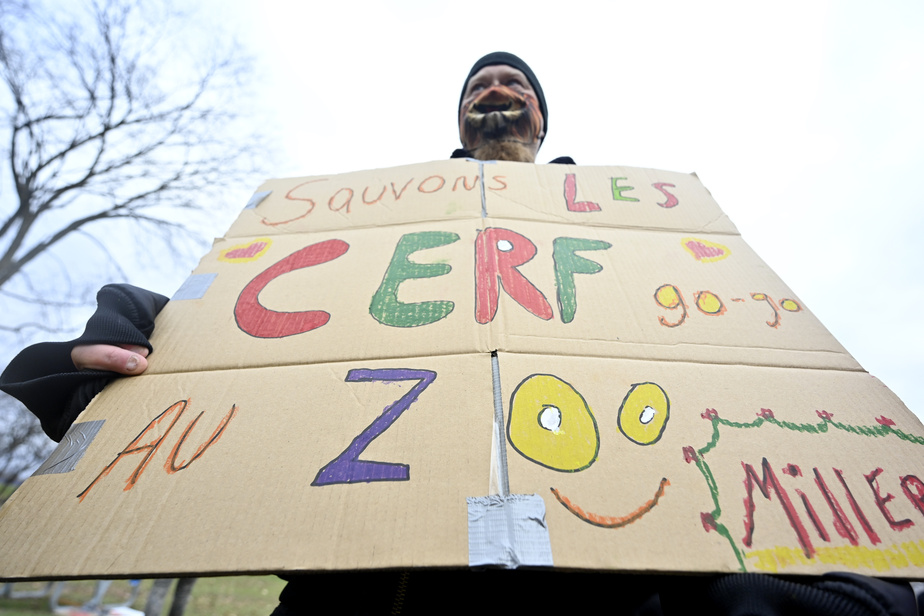 Sauvons LES
CERF go-go
AU ZOO
MillER